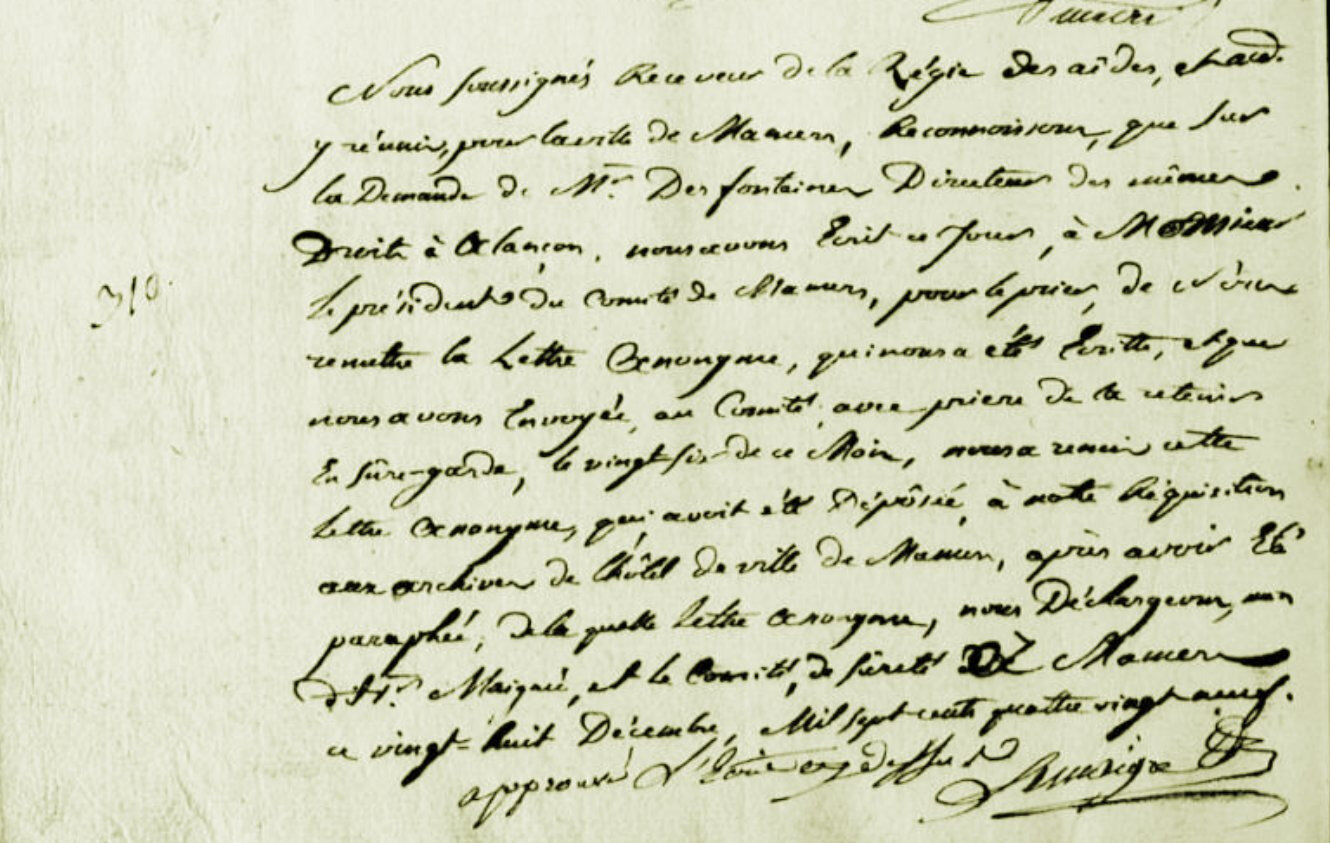 Nous soussignés Receveur de la Régie des aîdes, et aud.
y réunis, pour la ville de Mamers, Reconnoissons, que sur
la Demande de Mr. Desfontaines Directeur des mêmes
Droits à Alançon, nous avons Ecrit ce Jour, à Monsieur
le président du Comité de Mamers, pour le prier, de
remettre la Lettre Anonyme, qui nous a été Ecritte, et que
310.
nous avons Envoyée, au Comité, avec priere de la retenir
En sûre-garde, le vingt six de ce Mois, nous a remis cette
Lettre Anonyme, qui avoit été Dépôsée, à notre Réquisition
aux archives de l'hôtel de ville de Mamers, après avoir Eté
paraphée, de la quelle lettre anonyme, nous Déchargeons, mon
dt. Sr. Maigné, et le Comité, de sûreté DE Mamers
ce vingt=huit Décembre, Mil sept cents quattre vingt neuf.
approuvé L'Ecrit cy dessus